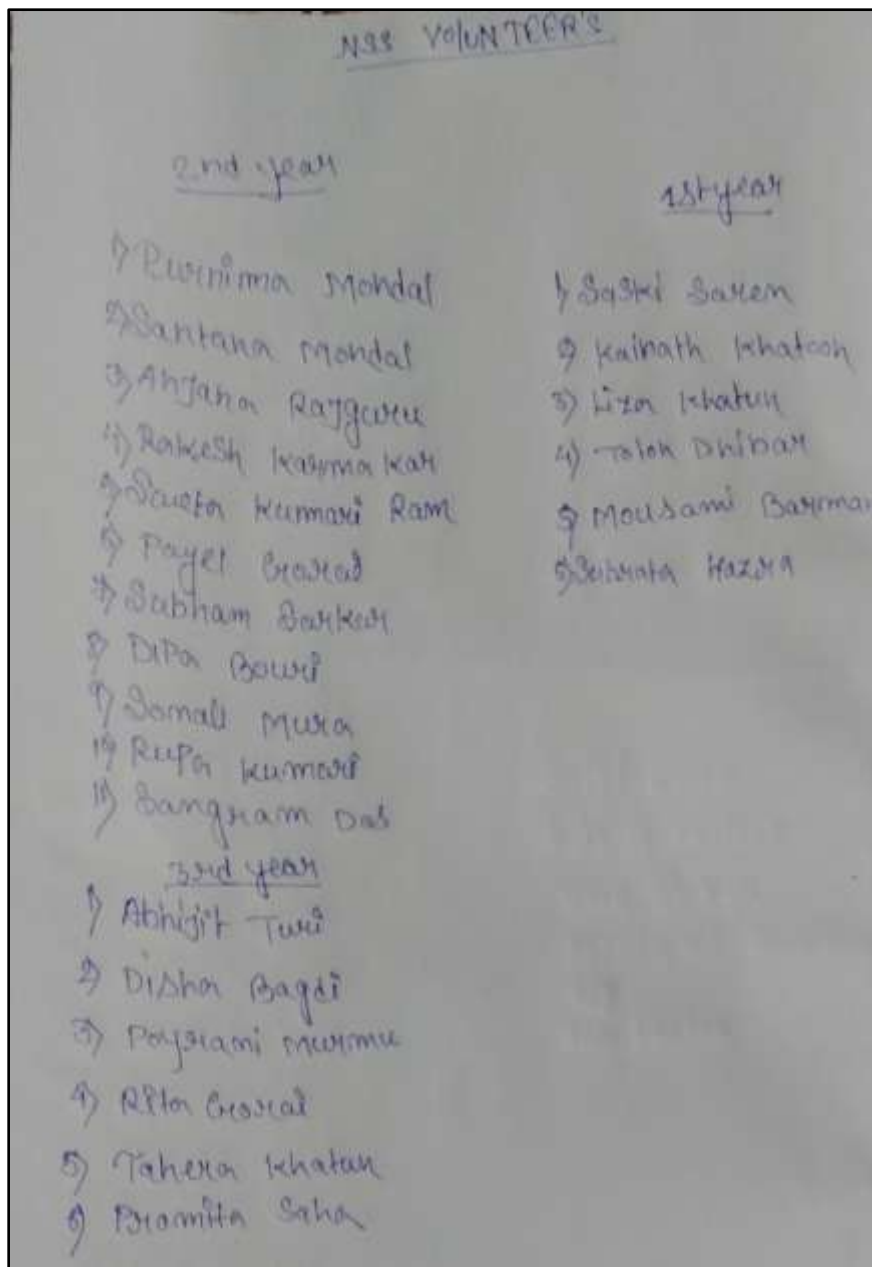 NSS VOLUNTEER'S
2nd year
1) Purnima Mondal
2) Santana Mondal
3) Anjana Rajguru
4) Rakesh Karmakar
5) Kumari Ram
6) Payel Gorai
7) Subham Sarkar
8) Dipa Bouri
9) Somali Mura
10) Rupa Kumari
11) Sangram Das
3rd year
1) Abhijit Turi
2) Disha Bagdi
3) Payrami Murmu
4) Rita Gorai
5) Tahera Khatun
6) Pramita Saha
1st year
1) Saski Saren
2) Kainath Khatoon
3) Liza Khatun
4) Dhibar
5) Mousami Barman
Hazra